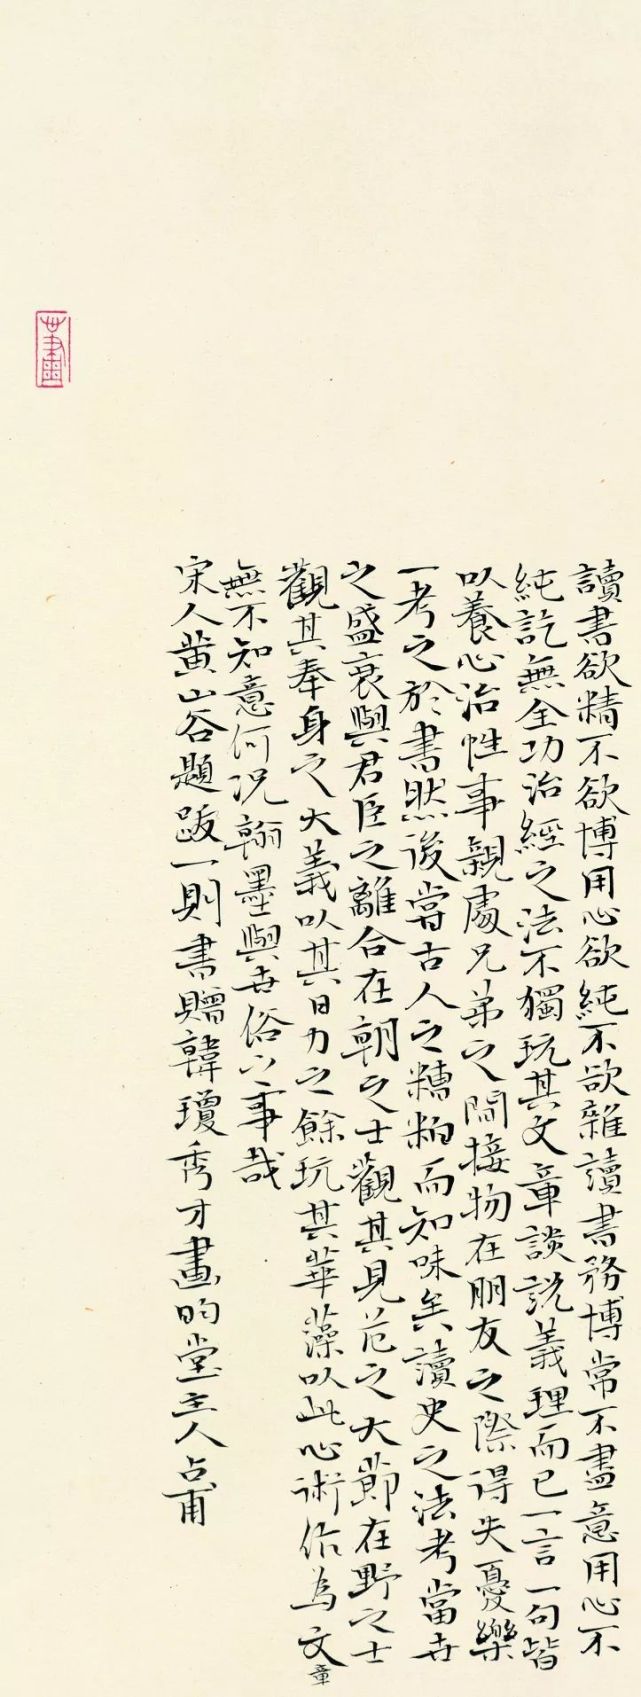 讀書欲精不欲博用心欲純不欲雜讀書務博常不盡意用心不
純訖無全功治經之法不獨玩其文章談説義理而已一言一句皆
以養心治性事親處兄弟之間接物在朋友之際得失憂樂
一考之於書然後嘗古人之糟粕而知味矣讀史之法考當世
之盛衰與君臣之離合在朝之士觀其見危之大節在野之士
觀其奉身之大義以其日力之餘玩其華藻以此心術作為文章
無不知意何况翰墨與世俗之事哉
宋人黄山谷題跋一則書贈韓瓊秀才畫昀堂主人占甫